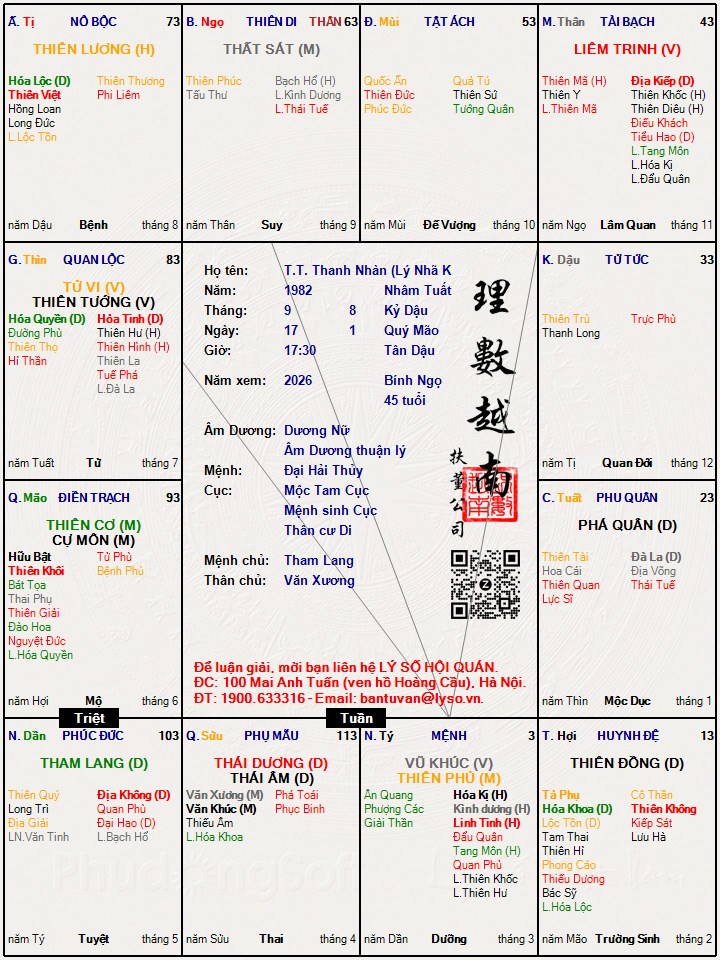 Ất. Tị NÔ BỘC 73
THIÊN LƯƠNG (H)
Hóa Lộc (D) Thiên Thương
Thiên Việt Phi Liêm
Hồng Loan
Long Đức
L.Lộc Tồn
năm Dậu Bệnh tháng 8
B. Ngọ THIÊN DI THÂN 63
THẤT SÁT (M)
Thiên Phúc Bạch Hổ (H)
Tấu Thư L.Kình Dương
L.Thái Tuế
năm Thân Suy tháng 9
Đ. Mùi TẬT ÁCH 53
Quốc Ấn Quả Tú
Thiên Đức Thiên Sứ
Phúc Đức Tướng Quân
năm Mùi Đế Vượng tháng 10
M. Thân TÀI BẠCH 43
LIÊM TRINH (V)
Thiên Mã (H) Địa Kiếp (D)
Thiên Y Thiên Khốc (H)
L.Thiên Mã Thiên Diêu (H)
Điếu Khách
Tiểu Hao (D)
L.Tang Môn
L.Hóa Kị
L.Đẩu Quân
năm Ngọ Lâm Quan tháng 11
G. Thìn QUAN LỘC 83
TỬ VI (V)
THIÊN TƯỚNG (V)
Hóa Quyền (D) Hỏa Tinh (D)
Đường Phù Thiên Hư (H)
Thiên Thọ Thiên Hình (H)
Hỉ Thần Thiên La
Tuế Phá
L.Đà La
năm Tuất Tử tháng 7
Họ tên: T.T. Thanh Nhàn (Lý Nhã K
Năm: 1982 Nhâm Tuất
Tháng: 9 8 Kỷ Dậu
Ngày: 17 1 Quý Mão
Giờ: 17:30 Tân Dậu
Năm xem: 2026 Bính Ngọ
45 tuổi
Âm Dương: Dương Nữ
Âm Dương thuận lý
Mệnh: Đại Hải Thủy
Cục: Mộc Tam Cục
Mệnh sinh Cục
Thân cư Di
Mệnh chủ: Tham Lang
Thân chủ: Văn Xương
理數越南
扶董公司
Để luận giải, mời bạn liên hệ LÝ SỐ HỘI QUÁN.
ĐC: 100 Mai Anh Tuấn (ven hồ Hoàng Cầu), Hà Nội.
ĐT: 1900.633316 - Email: bantuvan@lyso.vn.
K. Dậu TỬ TỨC 33
Thiên Trù Trực Phù
Thanh Long
năm Tị Quan Đới tháng 12
Q. Mão ĐIỀN TRẠCH 93
THIÊN CƠ (M)
CỰ MÔN (M)
Hữu Bật Tử Phù
Thiên Khôi Bệnh Phù
Bát Tọa
Thai Phụ
Thiên Giải
Đào Hoa
Nguyệt Đức
L.Hóa Quyền
năm Hợi Mộ tháng 6
C. Tuất PHU QUÂN 23
PHÁ QUÂN (D)
Thiên Tài Đà La (D)
Hoa Cái Địa Võng
Thiên Quan Thái Tuế
Lực Sĩ
năm Thìn Mộc Dục tháng 1
Triệt
Tuần
N. Dần PHÚC ĐỨC 103
THAM LANG (D)
Thiên Quý Địa Không (D)
Long Trì Quan Phù
Địa Giải Đại Hao (D)
LN.Văn Tinh L.Bạch Hổ
năm Tý Tuyệt tháng 5
Q. Sửu PHỤ MẪU 113
THÁI DƯƠNG (D)
THÁI ÂM (D)
Văn Xương (M) Phá Toái
Văn Khúc (M) Phục Binh
Thiếu Âm
L.Hóa Khoa
năm Sửu Thai tháng 4
N. Tý MỆNH 3
VŨ KHÚC (V)
THIÊN PHỦ (M)
Ân Quang Hóa Kị (H)
Phượng Các Kình dương (H)
Giải Thần Linh Tinh (H)
Đẩu Quân
Tang Môn (H)
Quan Phủ
L.Thiên Khốc
L.Thiên Hư
năm Dần Dưỡng tháng 3
T. Hợi HUYNH ĐỆ 13
THIÊN ĐỒNG (D)
Tả Phụ Cô Thần
Hóa Khoa (D) Thiên Không
Lộc Tồn (D) Kiếp Sát
Tam Thai Lưu Hà
Thiên Hỉ
Phong Cáo
Thiếu Dương
Bác Sỹ
L.Hóa Lộc
năm Mão Trường Sinh tháng 2